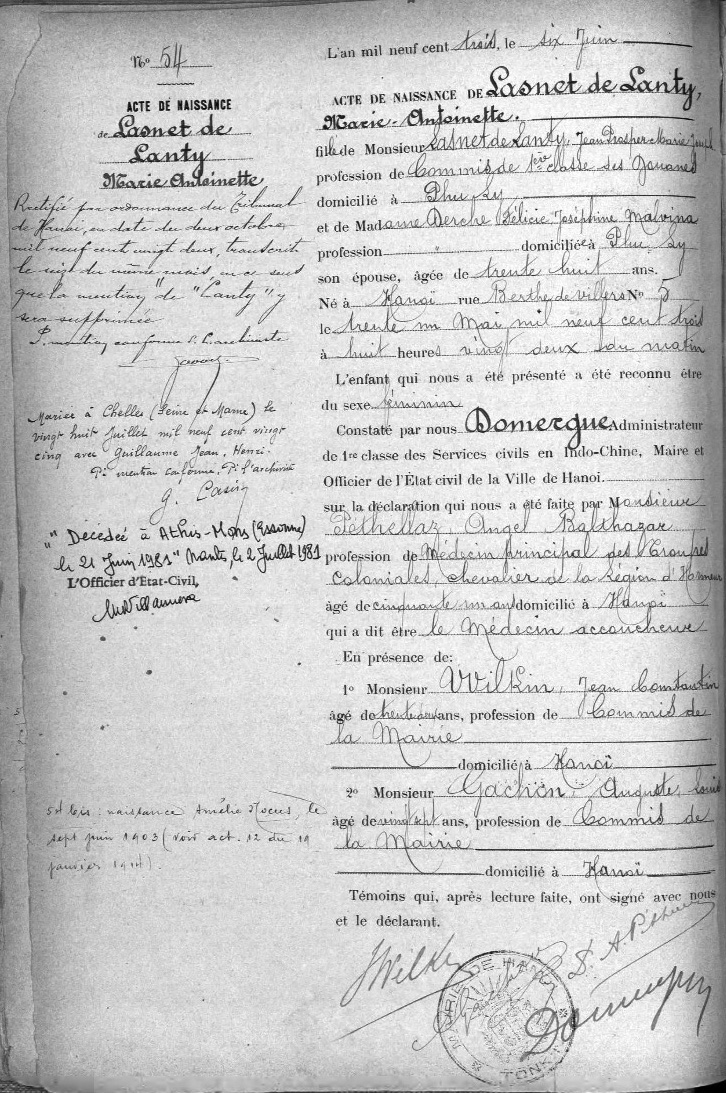 No 54
ACTE DE NAISSANCE
de Lasnet de
Lanty
Marie Antoinette
Rectifié par ordonnance du Tribunal
de Hanoi, en date du deux octobre
mil neuf cent vingt deux, transcrit
le vingt du même mois, en ce sens
que la mention "de Lanty" y
sera supprimée
P. mention conforme P. L'archiviste
Mariée à Chelles (Seine et Marne) le
vingt huit Juillet mil neuf cent vingt
cinq avec Guillaume Jean, Henri.
Pr mention conforme, Pr l'archiviste
G. Casin
"Décédée à Athis-Mons (Essonne)
le 21 Juin 1981" Nantes, le 2 Juillet 1981
L'Officier d'Etat-Civil,
54 bis : naissance Amélie le
sept juin 1903 (voir act. 12 du 19
janvier 1914).
L'an mil neuf cent trois, le six Juin
ACTE DE NAISSANCE DE Lasnet de Lanty,
Marie-Antoinette.
fille de Monsieur Lasnet de Lanty, Jean Prosper Marie Joseph
profession de Commis de 1ère classe des Douanes
domicilié à Phu Ly
et de Madame Derche Félicie Joséphine Malvina
profession " domiciliée à Phu Ly
son épouse, âgée de trente huit ans.
Né à Hanoï rue Berthe de Villers No 5
le trente un Mai mil neuf cent trois
à huit heures vingt deux du matin
L'enfant qui nous a été présenté a été reconnu être
du sexe féminin
Constaté par nous Domergue Administrateur
de 1re classe des Services civils en Indo-Chine, Maire et
Officier de l'État civil de la Ville de Hanoi.
sur la déclaration qui nous a été faite par Monsieur
Péthellaz, Angel Balthazar
profession de Médecin principal des Troupes
Coloniales, chevalier de la Légion d'Honneur
âgé de cinquante un ans domicilié à Hanoï
qui a dit être le Médecin accoucheur
En présence de:
1o Monsieur Wilkin, Jean Constantin
âgé de trente deux ans, profession de Commis de
la Mairie
domicilié à Hanoï
2o Monsieur Gachon, Auguste, Louis
âgé de vingt sept ans, profession de Commis de
la Mairie
domicilié à Hanoï
Témoins qui, après lecture faite, ont signé avec nous
et le déclarant.
JWilkin
MAIRIE DE HANOI
TONKIN
Domergue